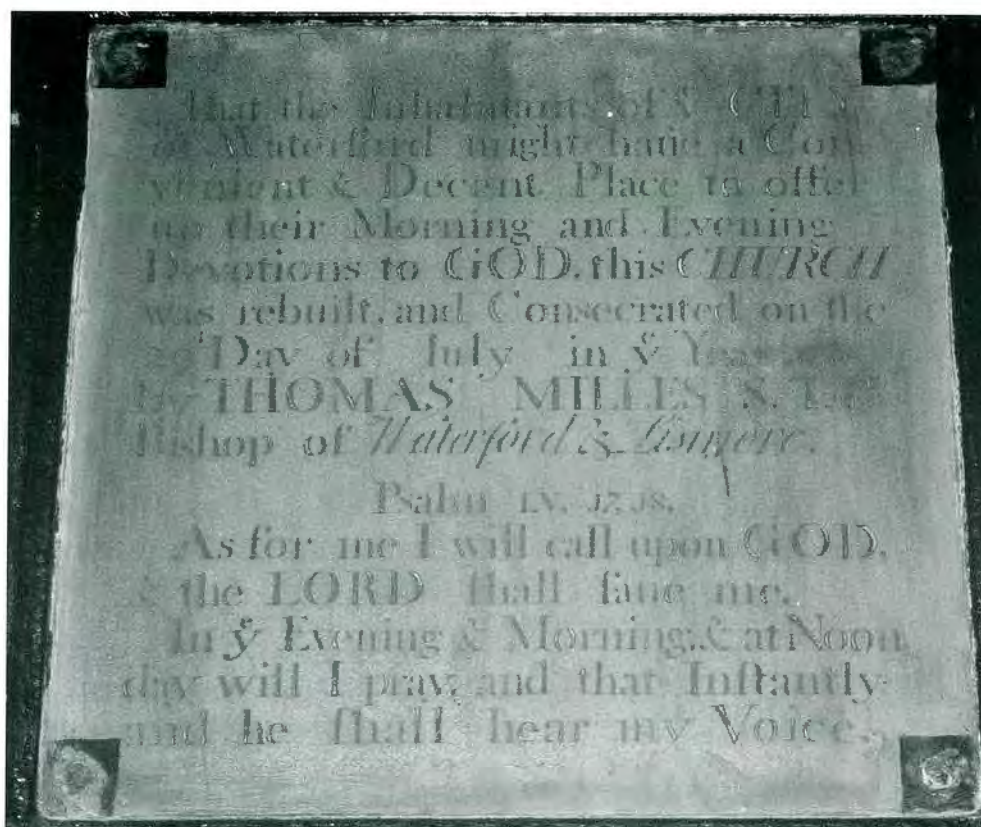 That the Inhabitants of yͤ CITY
of Waterford might haue a Con
venient & Decent Place to offer
up their Morning and Evening
Devotions to GOD, this CHURCH
was rebuilt, and Consecrated on the
Day of July in yͤ Year
by THOMAS MILLES S. T.
Bishop of Waterford & Lismore.
Psalm LV. 17, 18.
As for me I will call upon GOD,
& the LORD ſhall ſaue me.
In yͤ Evening & Morning, & at Noon
day will I pray, and that Inſtantly
and he ſhall hear my Voice.